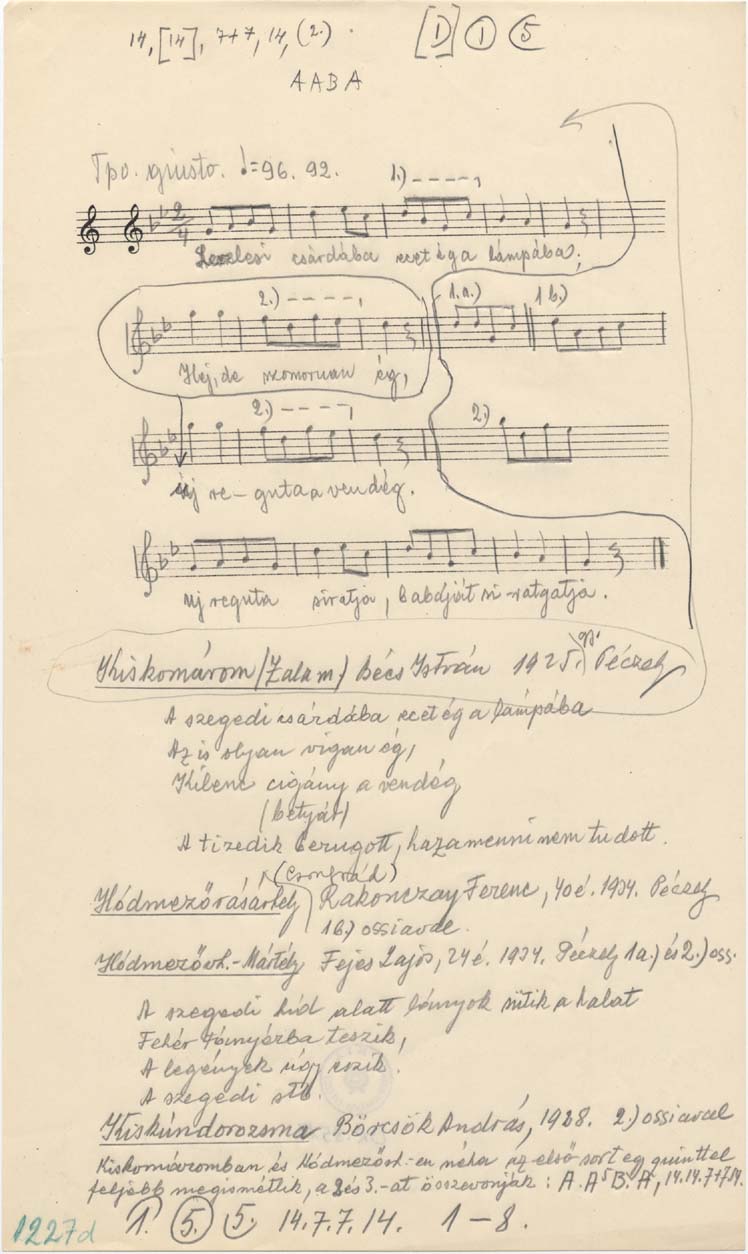 14, [14], 7+7, 14, (2.) . [1] 1 5
A A B A
Tpo. giusto. ♩=96. 92. 1.) – – – – ,
2/4
csárdába ecet ég a lámpába;
2.) – – – – , 1.a.) 1 b.)
Hej, de szomoruan ég,
2.) – – – – , 2.)
új re-guta a vendég.
uj reguta siratja, babáját si-ratgatja.
Kiskomárom (Zala m.) Bécs István 1925. gr. Péczely
A szegedi csárdába ecet ég a lámpába
Az is olyan vigan ég,
Kilenc cigány a vendég
(betyár)
A tizedik berugott, hazamenni nem tudott.
(Csongrád)
Hódmezővásárhely Rakonczay Ferenc, 40 é. 1934. Péczely
1b.) ossiaval.
Hódmezővh.-Mártély Fejes Lajos, 24 é. 1934. Péczely 1a.) és 2.) oss.
A szegedi híd alatt lányok sütik a halat
Fehér tányérba teszik,
A legények úgy eszik.
A szegedi stb.
Kiskúndorozsma Börcsök András, 1928. 2.) ossiaval
Kiskomáromban és Hódmezővh.-en néha az első sort egy quinttel
feljebb megismétlik, a 2 és 3.-at összevonják: A. A5 B. A, 14. 14. 7+7 14.
1227d 1. 5. 5. 14. 7. 7. 14. 1–8.